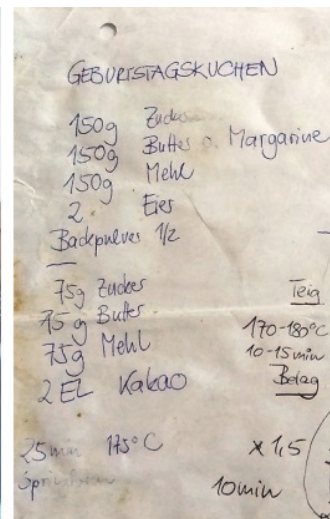 GEBURTSTAGSKUCHEN
150g Zucker
150g Butter o. Margarine
150g Mehl
2 Eier
Backpulver 1/2
75g Zucker
75g Butter
75g Mehl
2 EL Kakao
25min 175°C
Springform
Teig
170-180°C
10-15min
Belag
x 1,5
10min